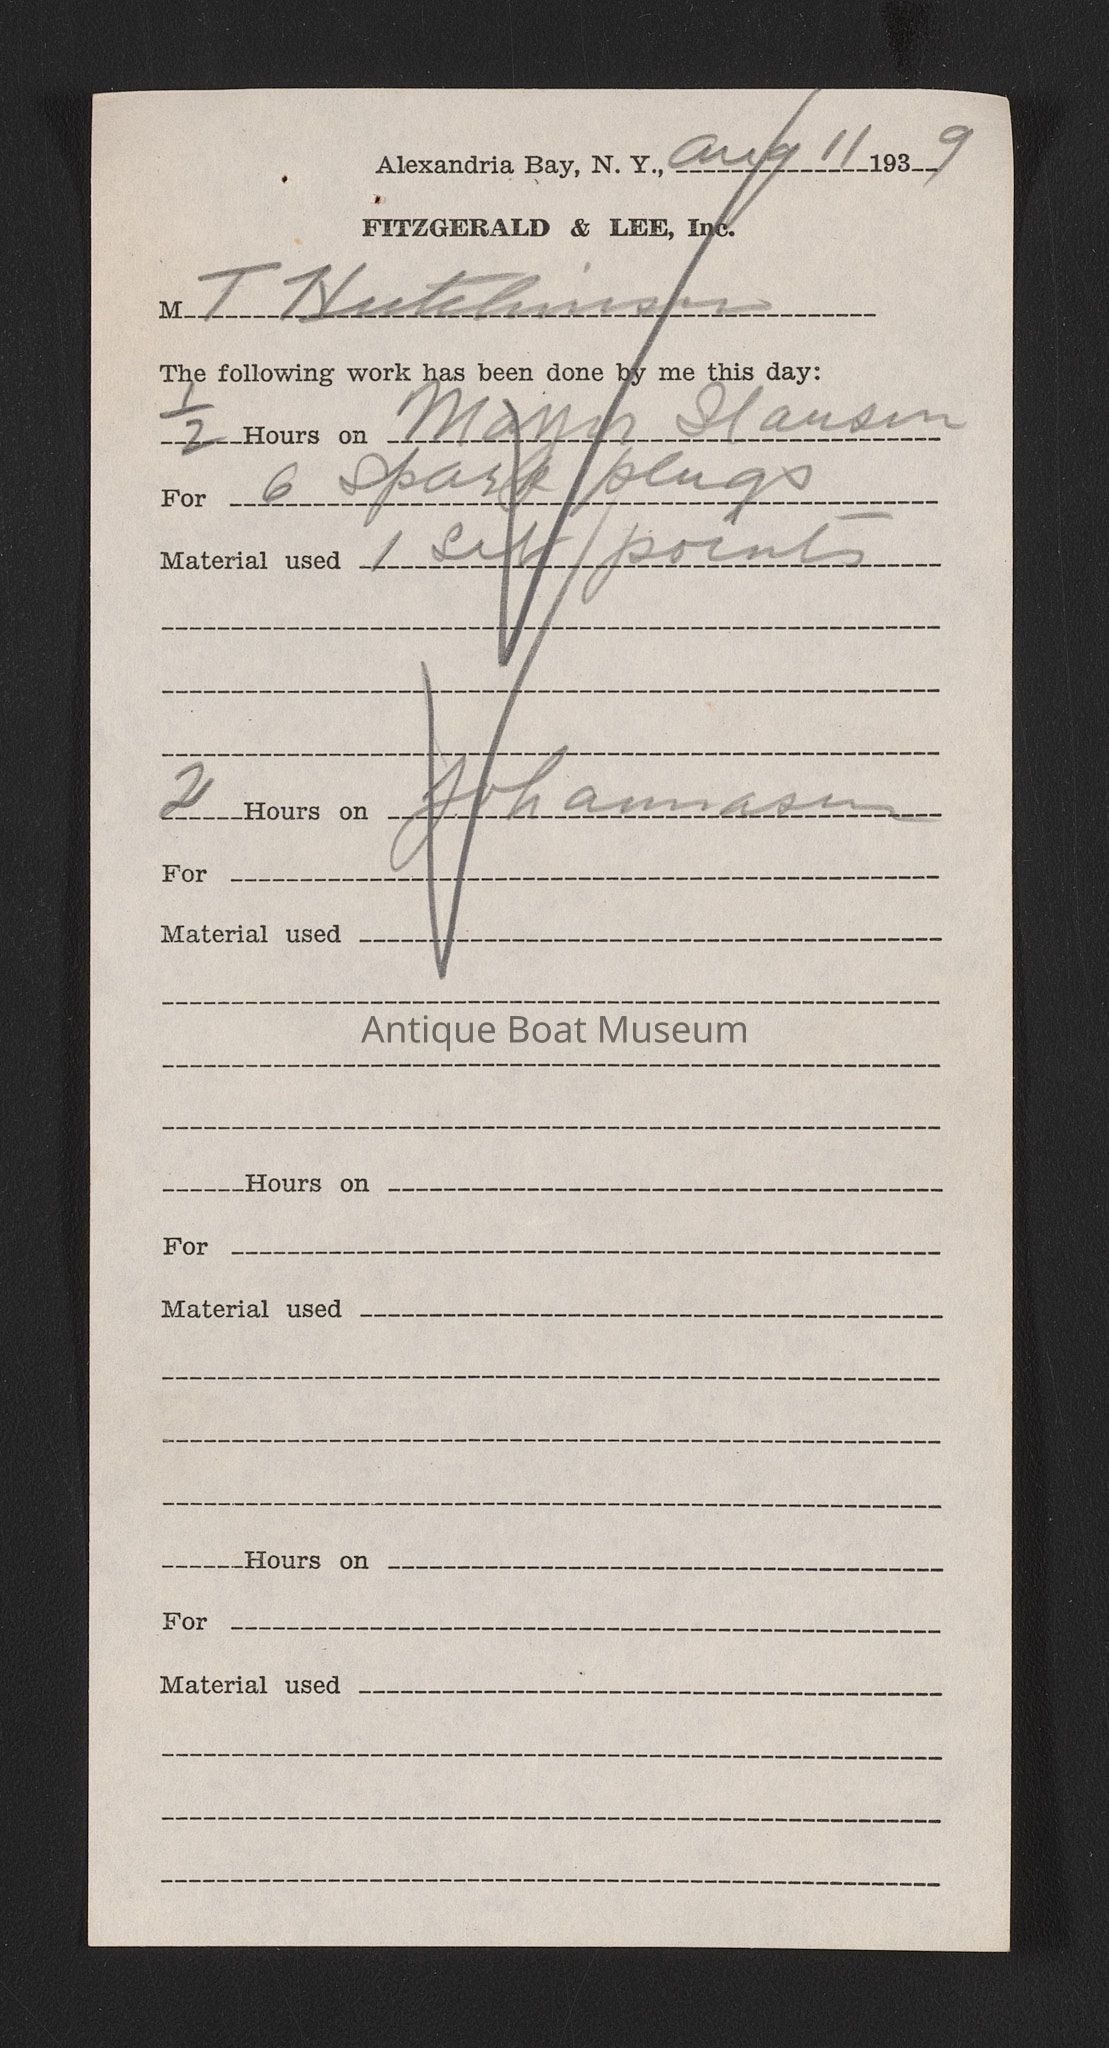 Alexandria Bay, N. Y., Aug 11 1939
FITZGERALD & LEE, Inc.
M T Hutchinson
The following work has been done by me this day:
1/2 Hours on Mayor Slausen
For 6 Spark plugs
Material used 1 set points
2 Hours on Johannasen
For
Material used
Antique Boat Museum
Hours on
For
Material used
Hours on
For
Material used